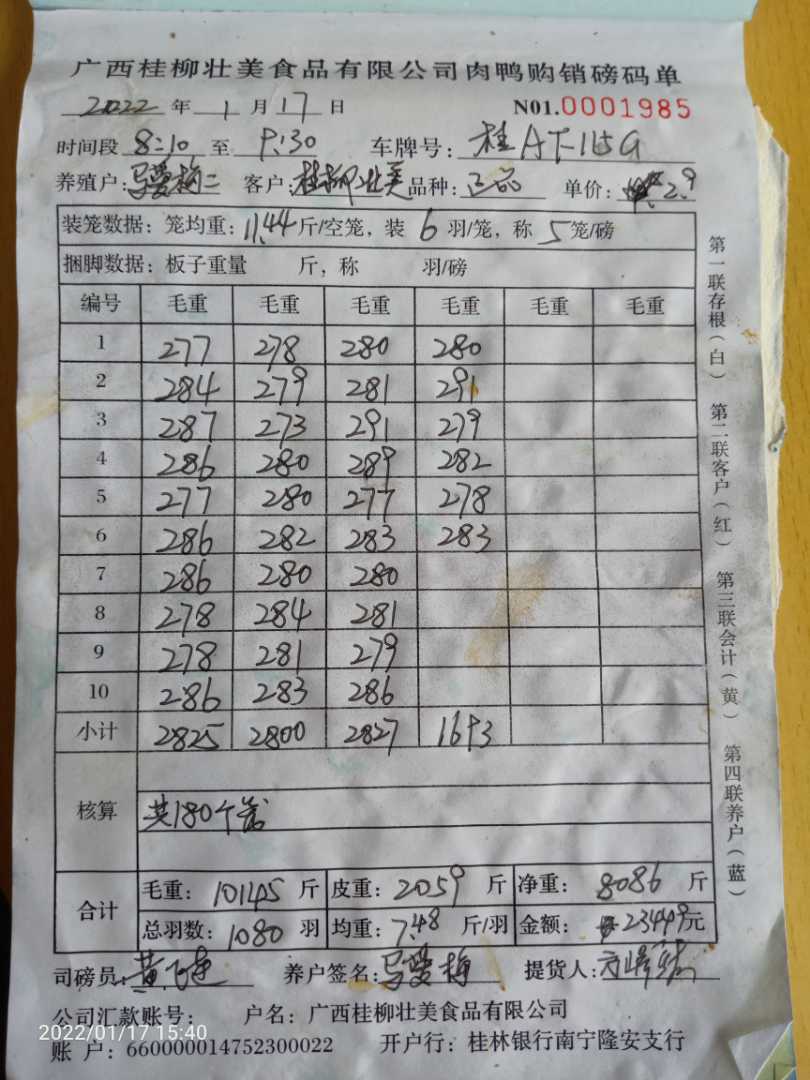 广西桂柳壮美食品有限公司肉鸭购销磅码单
2022 年 1 月 17 日 N01.0001985
时间段 8:10 至 9:30 车牌号: 桂
养殖户: 马爱梅二 客户: 桂柳壮美 品种: 正品 单价: 2.9
装笼数据: 笼均重: 11.44 斤/空笼, 装 6 羽/笼, 称 5 笼/磅
捆脚数据: 板子重量 斤, 称 羽/磅
编号 毛重 毛重 毛重 毛重 毛重 毛重
1 277 278 280 280
2 284 279 281 291
3 287 273 291 279
4 286 280 289 282
5 277 280 277 278
6 286 282 283 283
7 286 280 280
8 278 284 281
9 278 281 279
10 286 283 286
小计 2825 2800 2827 1693
核算 共180个笼
合计 毛重: 10145 斤 皮重: 2059 斤 净重: 8086 斤
总羽数: 1080 羽 均重: 7.48 斤/羽 金额: 23449元
司磅员: 养户签名: 马爱梅 提货人:
公司汇款账号: 户名: 广西桂柳壮美食品有限公司
2022/01/17 15:40
账 户: 660000014752300022 开户行: 桂林银行南宁隆安支行
第一联存根(白) 第二联客户(红) 第三联会计(黄) 第四联养户(蓝)